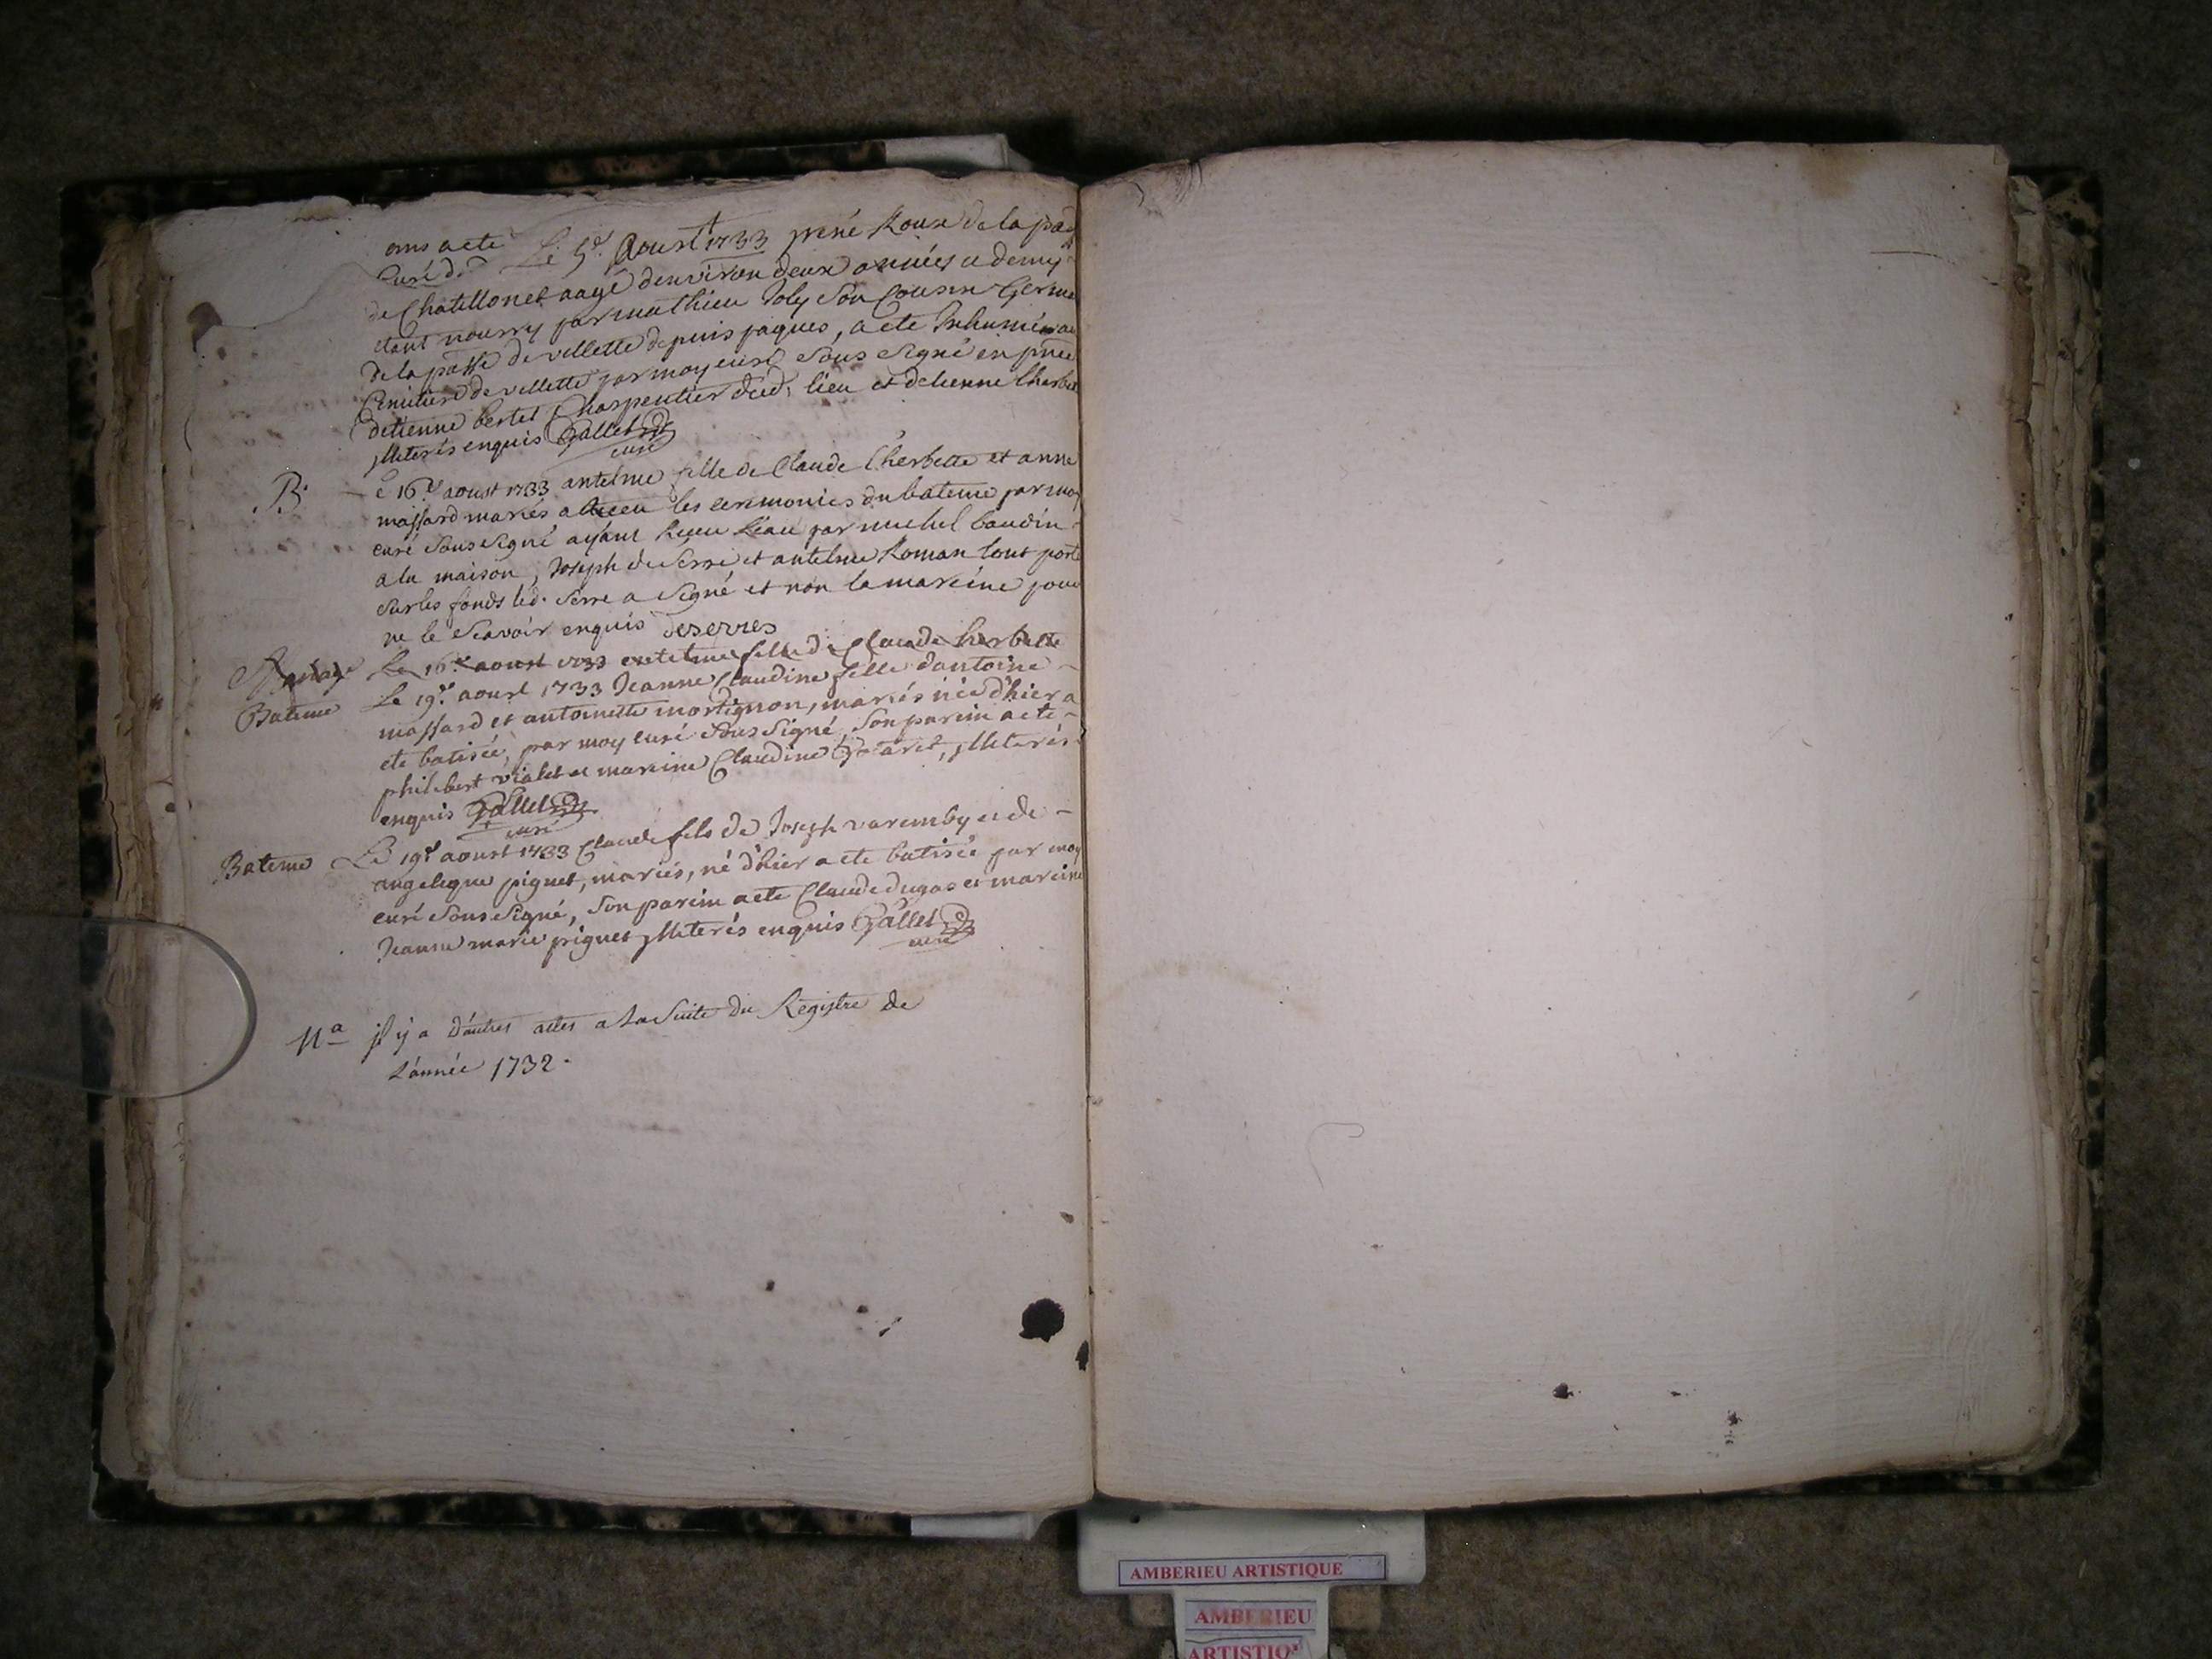 ans a ete
curé d. Le 5e. Aoust 1733 rené Roux de la par
de Chatillonet aagé denviron deux années et demy
etant nourry par mathieu Joly Son Cousin Germ
de la passe de vellette depuis jaques, a ete Inhumé au
Cimitiere de vellette par moy curé Sous Signé en pnce
detienne bertet Charpentier dud. lieu et detienne Cherbet
Illiterés enquis Gallet
curé
B. Le 16e aoust 1733 antelme fille de Claude Cherbette et anne
massard mariés a Receu les ceremonies du bateme par moy
curé Sous Signé ayant Receu Leau par michel baudin
a la maison, Joseph de Serre et antelme Roman lont porté
Sur les fonds led. Serre a Signé et non la mareine pour
ne le Scavoir enquis deserres
Mariage Le 16e aoust 1733 antelme fille de Claude herbette
Bateme Le 19e. aoust 1733 Jeanne Claudine fille dantoine
massard et antoinette mortignon, mariés née d'hier a
ete batisée, par moy curé Sous Signé, Son parein a ete
philibert violet et mareine Claudine, Illiterés
enquis Gallet
curé
Bateme Le 19e aoust 1733 Claude fils de Joseph varemby et de
angelique piguet, mariés, né d'hier a ete batisée par moy
curé Sous Signé, Son parein a ete Claude dugas et mareine
Jeanne marie piguet Illiterés enquis Gallet
curé
Na il y a d'autres actes a La Suite du Registre de
L'année 1732.
AMBERIEU ARTISTIQUE
AMBERIEU
ARTISTIQ